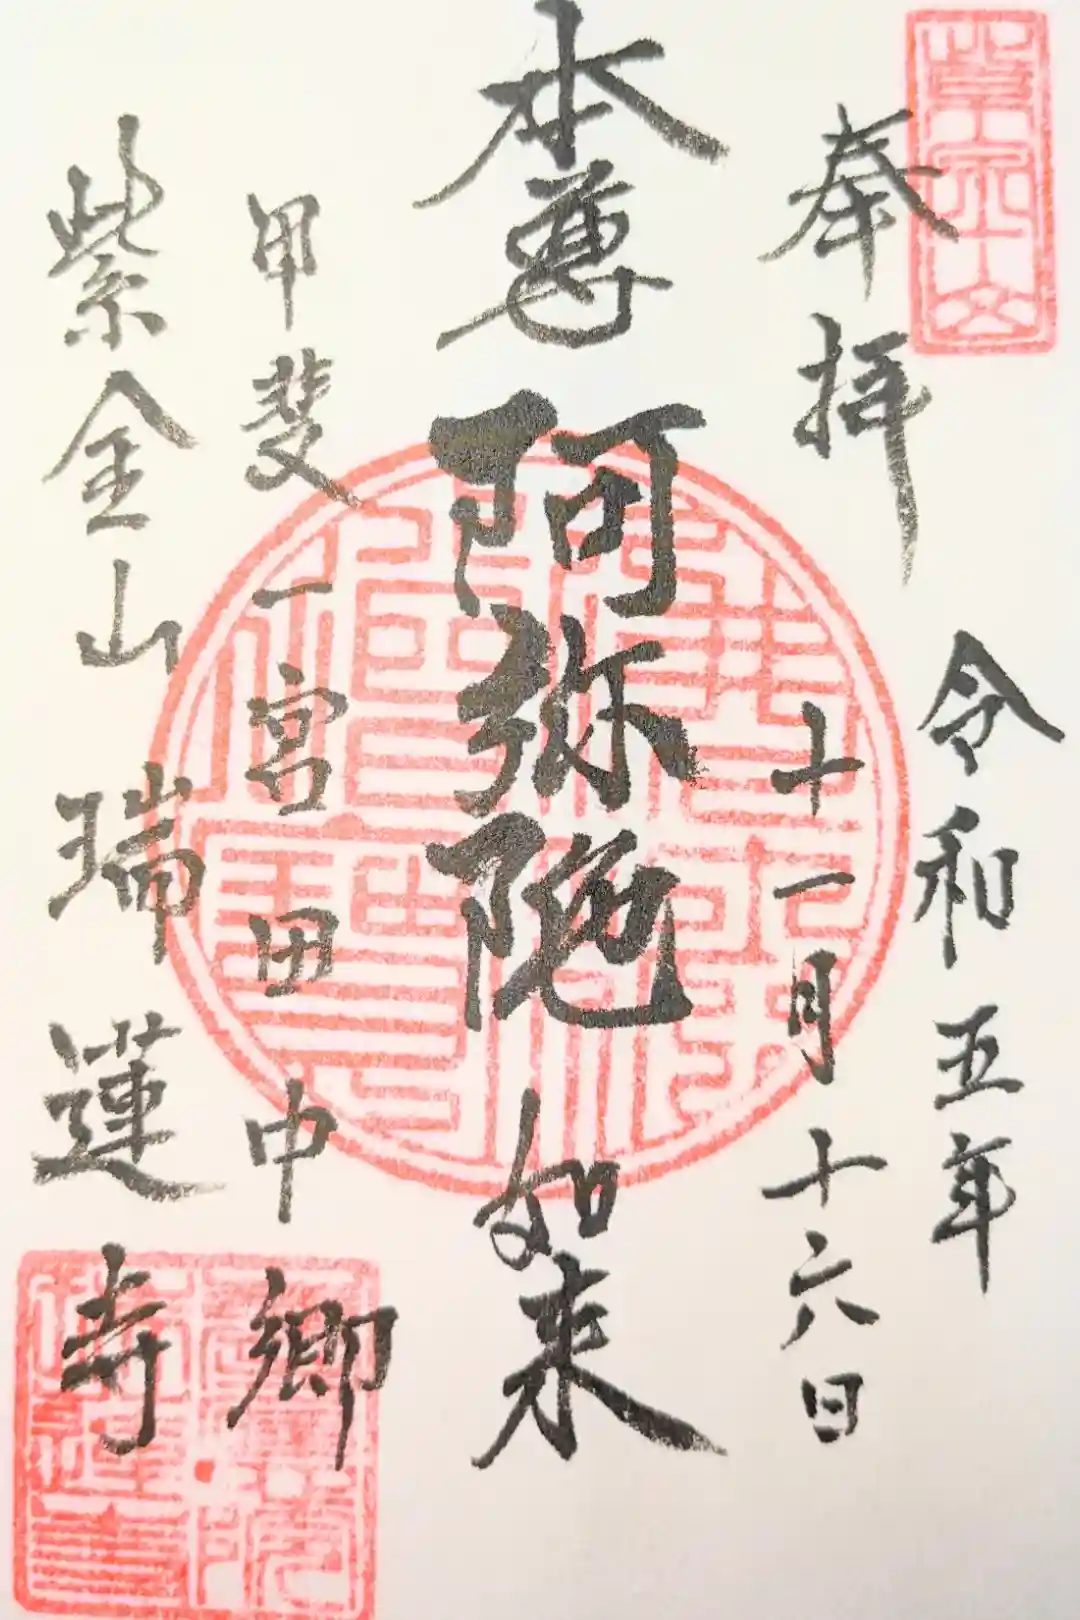 奉拝
令和五年
十一月十六日
本尊 阿弥陀如来
甲斐一宮田中郷
紫金山瑞蓮寺